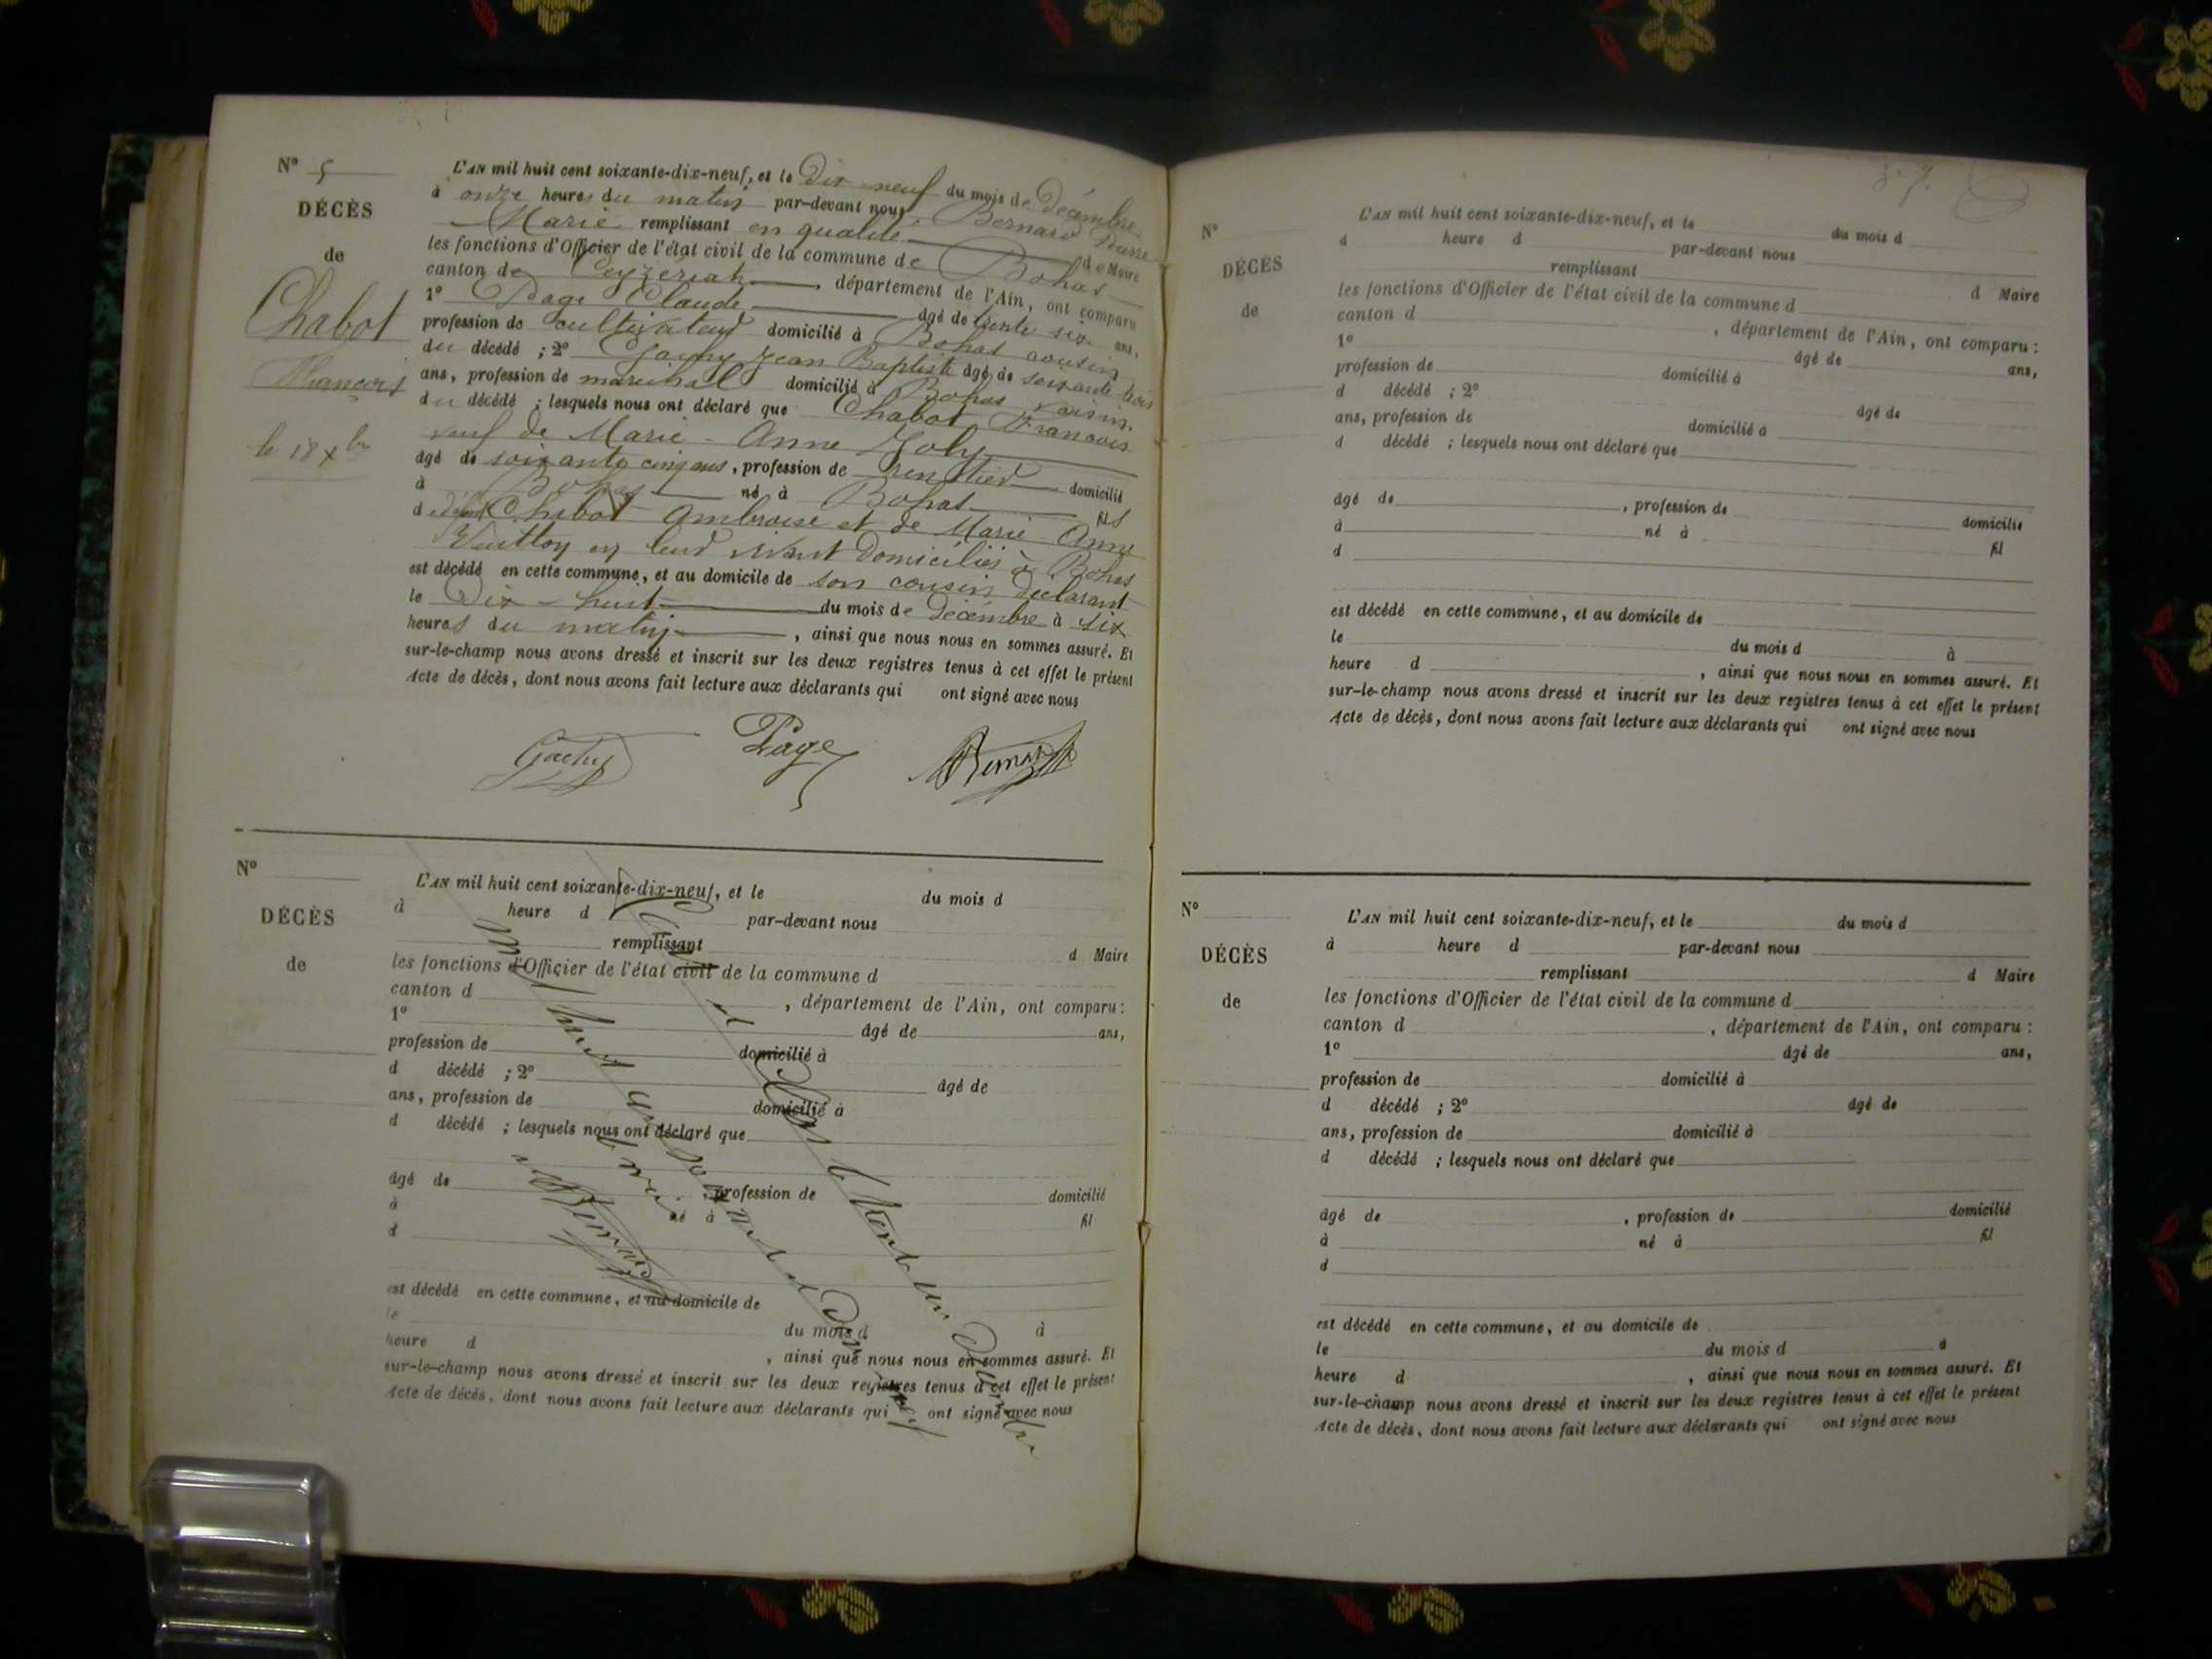 N° 5
DÉCÈS
de
Chabot
François
le 18 Xbre
L'AN mil huit cent soixante-dix-neuf, et le Dix neuf du mois de Décembre
à onze heures du matin par-devant nous Bernard Pierre
Marie remplissant en qualité de Maire
les fonctions d'Officier de l'état civil de la commune de Bohas
canton de Ceyzériat, département de l'Ain, ont comparu
1° Page Claude âgé de trente six ans,
profession de cultivateur domicilié à Bohas cousin
du décédé ; 2° Jean Baptiste âgé de soixante trois
ans, profession de maréchal domicilié à Bohas voisin
du décédé ; lesquels nous ont déclaré que Chabot François
veuf de Marie-Anne Joly
âgé de soixante cinq ans, profession de rentier domicilié
à Bohas né à Bohas fils
de défunt Chabot Ambroise et de Marie Anne
en leur vivant domiciliés à Bohas
est décédé en cette commune, et au domicile de son cousin déclarant
le Dix-huit du mois de Décembre à six
heures du matin, ainsi que nous nous en sommes assuré. Et
sur-le-champ nous avons dressé et inscrit sur les deux registres tenus à cet effet le présent
Acte de décès, dont nous avons fait lecture aux déclarants qui ont signé avec nous
Page Bernard
N°
DÉCÈS
de
L'AN mil huit cent soixante-dix-neuf, et le du mois d
à heure d par-devant nous
remplissant d Maire
les fonctions d'Officier de l'état civil de la commune d
canton d , département de l'Ain, ont comparu :
1° âgé de ans,
profession de domicilié à
d décédé ; 2° âgé de
ans, profession de domicilié à
d décédé ; lesquels nous ont déclaré que
âgé de , profession de domicilié
à né à fil
d
est décédé en cette commune, et au domicile de
le du mois d à
heure d , ainsi que nous nous en sommes assuré. Et
sur-le-champ nous avons dressé et inscrit sur les deux registres tenus à cet effet le présent
Acte de décès, dont nous avons fait lecture aux déclarants qui ont signé avec nous
Clos et le trente un Décembre
mil huit cent soixante et Dix neuf
le maire
Bernard
N°
DÉCÈS
de
L'AN mil huit cent soixante-dix-neuf, et le du mois d
à heure d par-devant nous
remplissant d Maire
les fonctions d'Officier de l'état civil de la commune d
canton d , département de l'Ain, ont comparu :
1° âgé de ans,
profession de domicilié à
d décédé ; 2° âgé de
ans, profession de domicilié à
d décédé ; lesquels nous ont déclaré que
âgé de , profession de domicilié
à né à fil
d
est décédé en cette commune, et au domicile de
le du mois d à
heure d , ainsi que nous nous en sommes assuré. Et
sur-le-champ nous avons dressé et inscrit sur les deux registres tenus à cet effet le présent
Acte de décès, dont nous avons fait lecture aux déclarants qui ont signé avec nous
N°
DÉCÈS
de
L'AN mil huit cent soixante-dix-neuf, et le du mois d
à heure d par-devant nous
remplissant d Maire
les fonctions d'Officier de l'état civil de la commune d
canton d , département de l'Ain, ont comparu :
1° âgé de ans,
profession de domicilié à
d décédé ; 2° âgé de
ans, profession de domicilié à
d décédé ; lesquels nous ont déclaré que
âgé de , profession de domicilié
à né à fil
d
est décédé en cette commune, et au domicile de
le du mois d à
heure d , ainsi que nous nous en sommes assuré. Et
sur-le-champ nous avons dressé et inscrit sur les deux registres tenus à cet effet le présent
Acte de décès, dont nous avons fait lecture aux déclarants qui ont signé avec nous